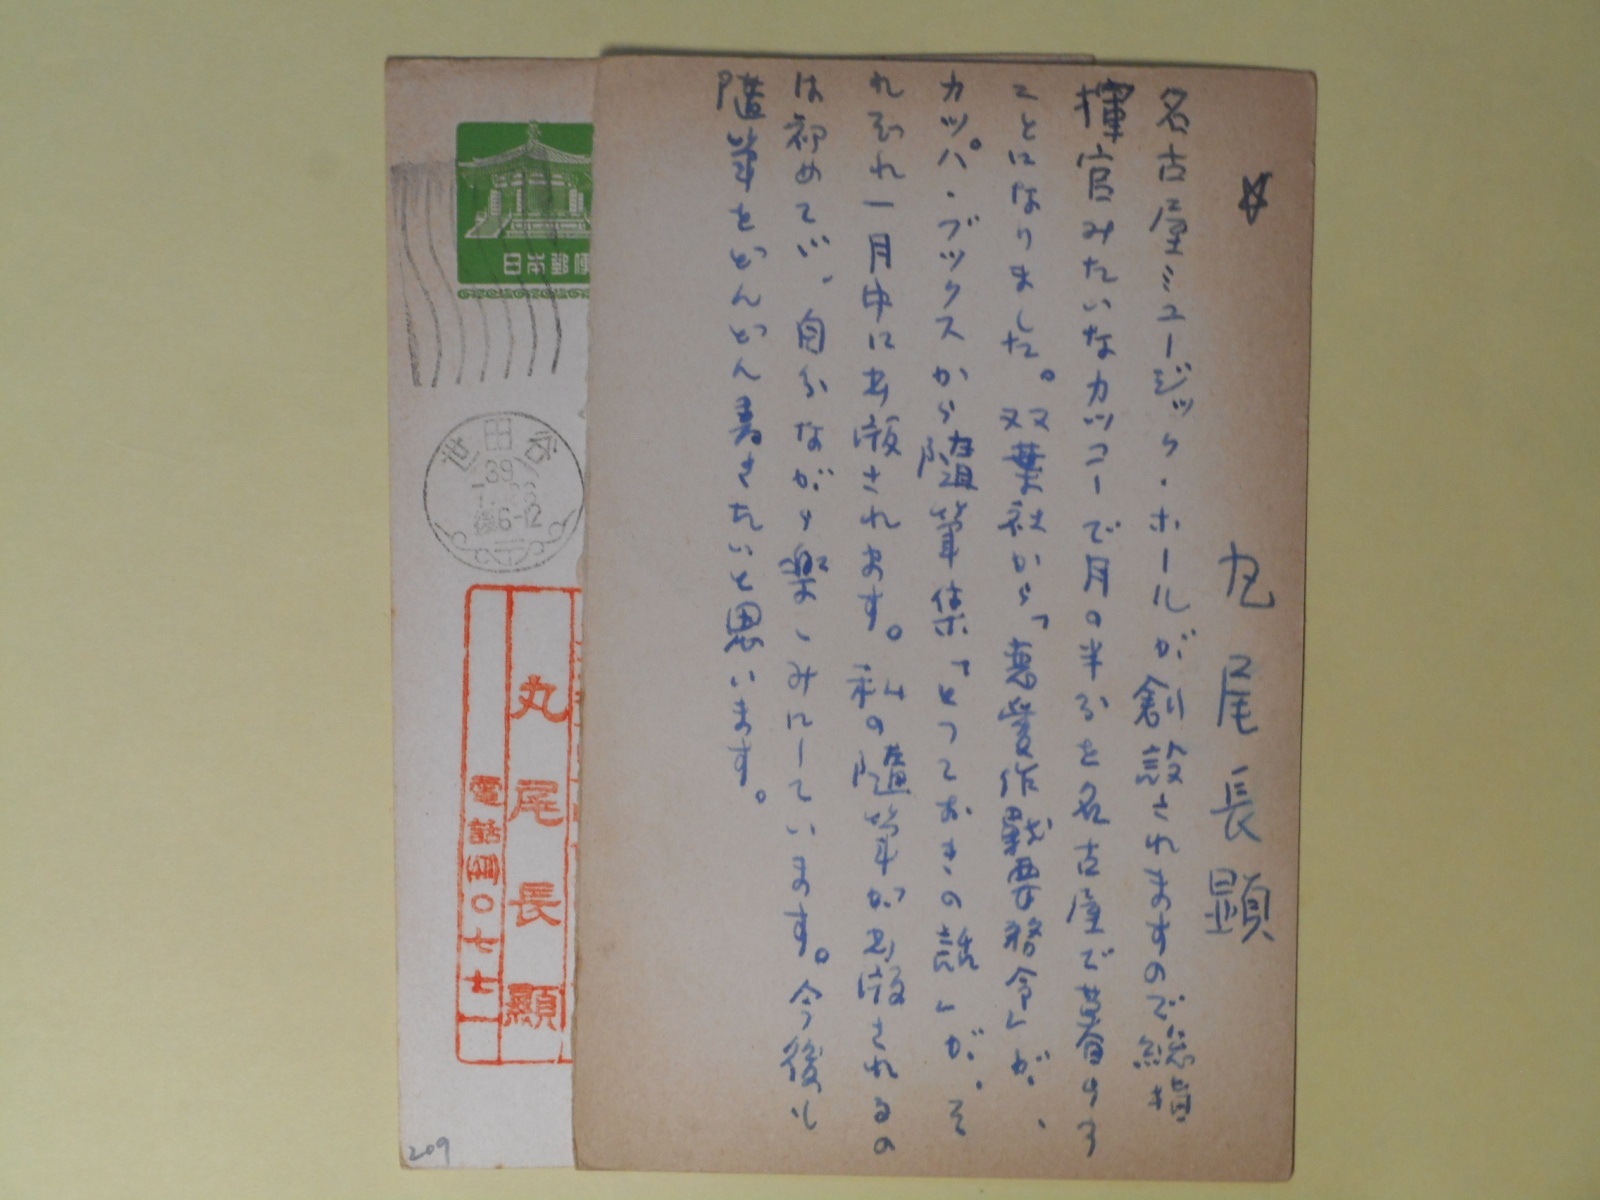 丸尾長顕
名古屋ミュージック・ホールが創設されますので総指
揮官みたいなカッコーで月の半分を名古屋で暮す
ことになりました。双葉社から「恋愛作戦要務令」が、
カッパ・ブックスから随筆集「とっておきの話」が、そ
れぞれ一月中に出版されます。私の随筆が出版されるの
は初めてで、自分ながら楽しみにしています。今後も
随筆をどんどん書きたいと思います。
日本郵便
世田谷
39
後6-12
丸尾長顯
電話 〇七七一
209